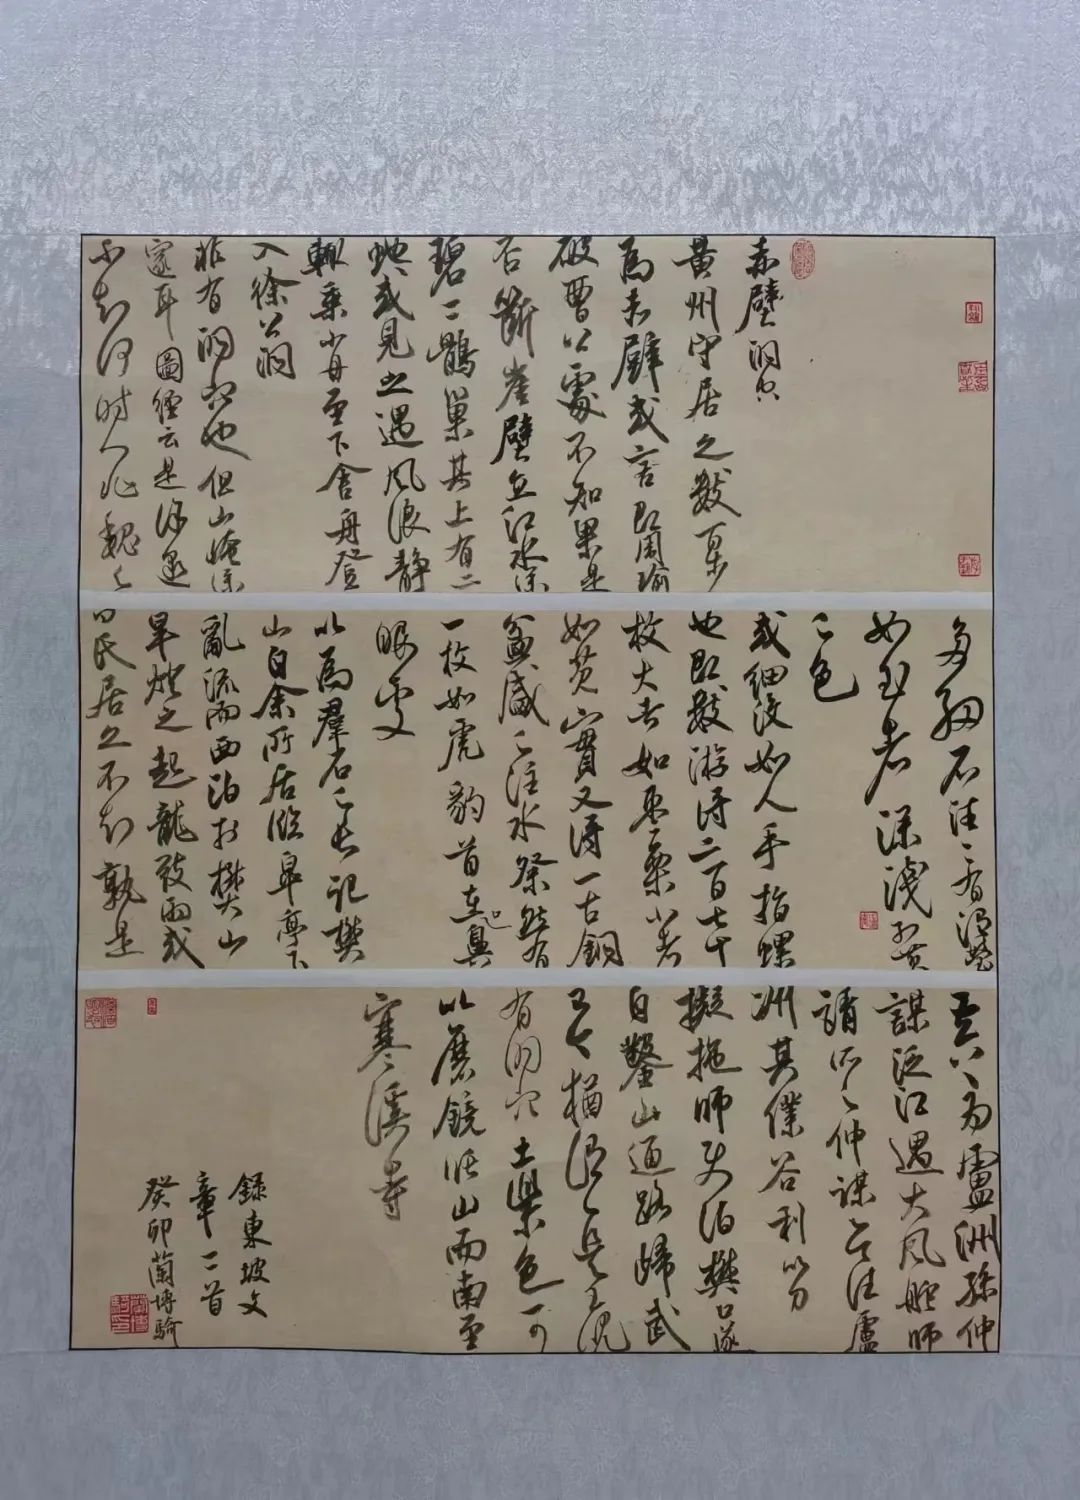 赤壁洞穴
黄州守居之数百步
為赤壁或言即周瑜
破曹公處不知果是
否斷崖壁立江水深
碧二鶻巢其上有二
虵或見之遇風浪靜
輒乘小舟至下舍舟登
入徐公洞
非有洞穴也但山崦深
邃耳圖經云是徐邈
不知何時人非魏之
多細石往往有温瑩
如玉者深淺紅黄
之色
或細紋如人手指螺
也既數游得二百七十
枚大者如棗栗小者
如芡實又得一古銅
盆盛之注水粲然有
一枚如虎豹首有口鼻
眼處
以為羣石之長記樊
山自余所居臨臯亭下
亂流而西泊於樊山
旱燔之起龍致雨或
曰氏居之不知孰是
其八為盧洲孫仲
謀泛江遇大風柂師
請所之仲謀欲往盧
洲其僕谷利以刀
擬拖師使泊樊口遂
自鑿山通路歸武
昌今猶謂之吳王峴
有洞穴土紫色可
以磨鏡循山而南至
寒溪寺
錄東坡文
章二首
癸卯蘭博騎